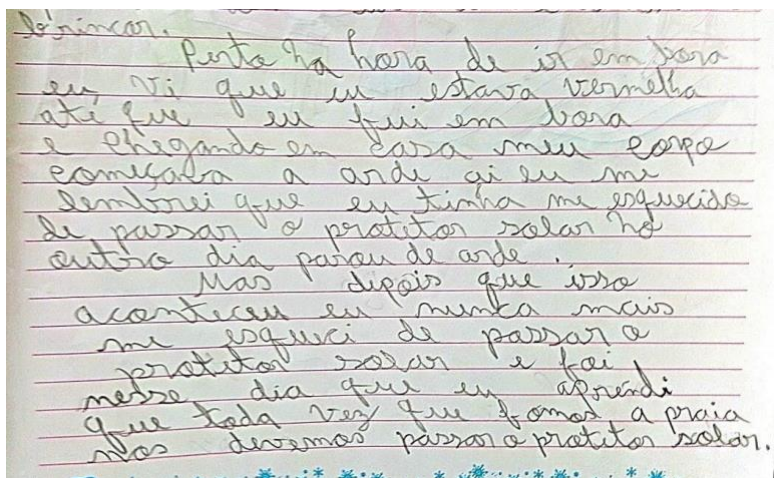 brincar.
Perto ha hora de ir em bora
eu, vi que eu estava vermelha
até que eu fui em bora
e chegando em casa meu corpo
começava a arde ai eu me
lembrei que eu tinha me esquecido
de passar o protitor solar no
outro dia parou de arde.
Mas dipois que isso
aconteceu eu nunca mais
me esqueci de passar o
protitor solar e foi
nesse dia que eu aprendi
que toda vez que fomos a praia
nos devemos passar o protitor solar.